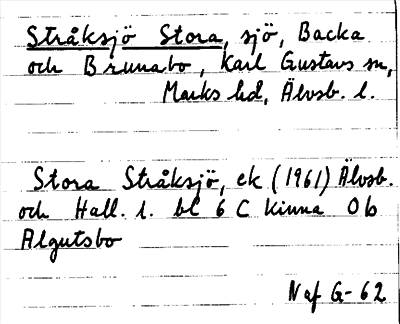 Stråksjö Stora, sjö, Backa
och Brunabo, Karl Gustavs sn,
Marks hd, Älvsb. l.
Stora Stråksjö, ek (1961) Älvsb.
och Hall. l. bl 6 C Kinna Ob
Algutsbo
Naf G-62